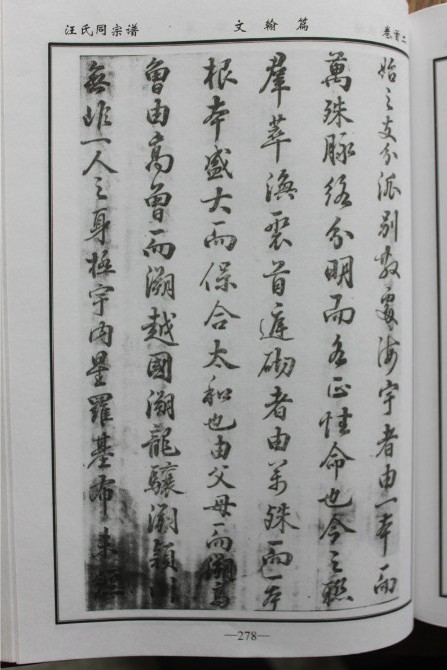 汪氏同宗谱 文翰篇 卷首二
始之支分派別散處海宇者由一本而
萬殊脉絡分明而各正性命也今之聯
羣萃渙裒首庭砌者由万殊而一本
根本盛大而保合太和也由父母而溯高
曾由高曾而溯越國溯龍驤溯潁川
無非一人之身極宇内星羅基布未經
—278—